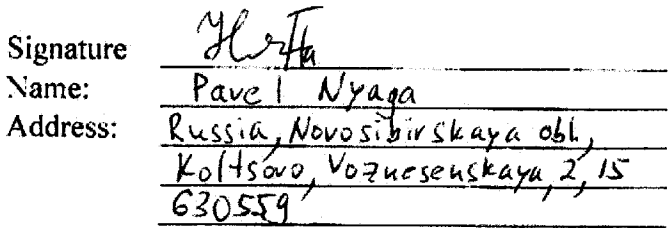 Signature
Name: Pavel Nyaga
Address: Russia, Novosibirskaya obl.,
Koltsovo, Voznesenskaya, 2, 15
630559